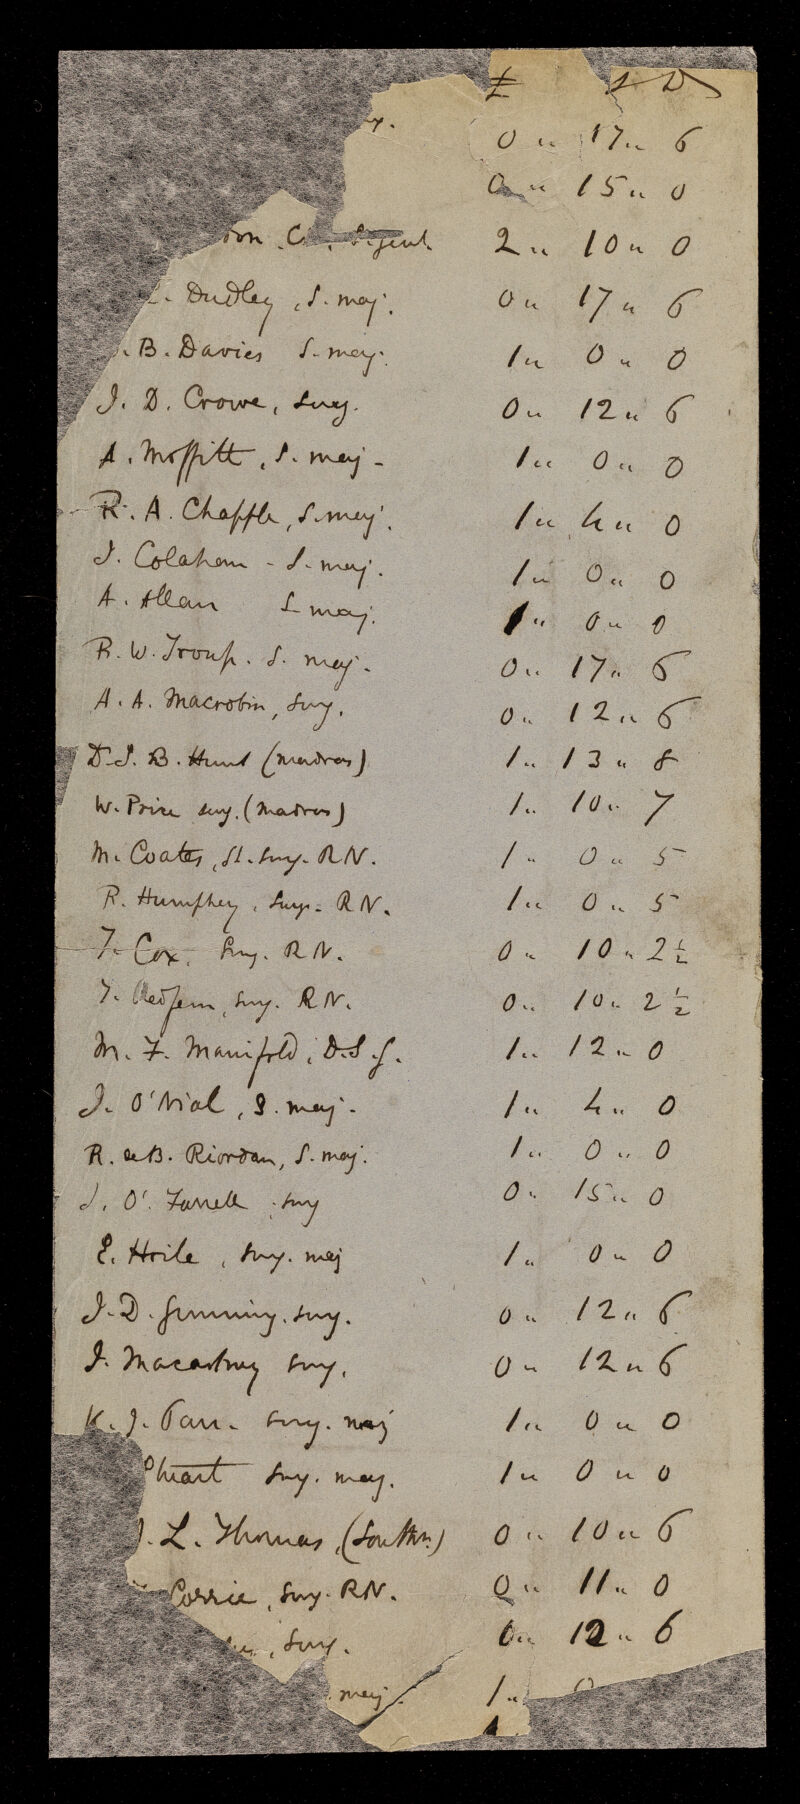 £ S D
0 " 17 " 6
0 " 15 " 0
2 " 10 " 0
Dudley, S. maj. 0 " 17 " 6
B. Davies S. maj. 1 " 0 " 0
J. D. Crowe, surg. 0 " 12 " 6
A. Moffitt, S. maj - 1 " 0 " 0
R. A. Chapple, S. maj. 1 " 4 " 0
J. Colahan - S. maj. 1 " 0 " 0
A. Allan S maj. 1 " 0 " 0
R. W. Troup. S. maj. 0 " 17 " 6
A. A. Macrobin, surg. 0 " 12 " 6
D.S. B. Hunt (madras) 1 " 13 " 8
W. Price surg. (madras) 1 " 10 " 7
M. Coates, St. surg. R N. 1 " 0 " 5
R. Humphrey, surg. R N. 1 " 0 " 5
F. Cox. Surg. R N. 0 " 10 " 2 ½
T. Redfern, surg. R N. 0 " 10 " 2 ½
M. F. Manifold, D.S.G. 1 " 12 " 0
J. O'Nial, S. maj. 1 " 4 " 0
R. de B. Riordan, S. maj. 1 " 0 " 0
J. O'Farrell surg 0 " 15 " 0
E. Hoile, surg. maj 1 " 0 " 0
J. D. Gunning. surg. 0 " 12 " 6
J. Macartney surg. 0 " 12 " 6
K. J. Parr. surg. maj 1 " 0 " 0
surg. maj. 1 " 0 " 0
L. Thomas, (Southn.) 0 " 10 " 6
Corrie, surg. R N. 0 " 11 " 0
, surg. 0 " 12 " 6
maj. 1 " 0